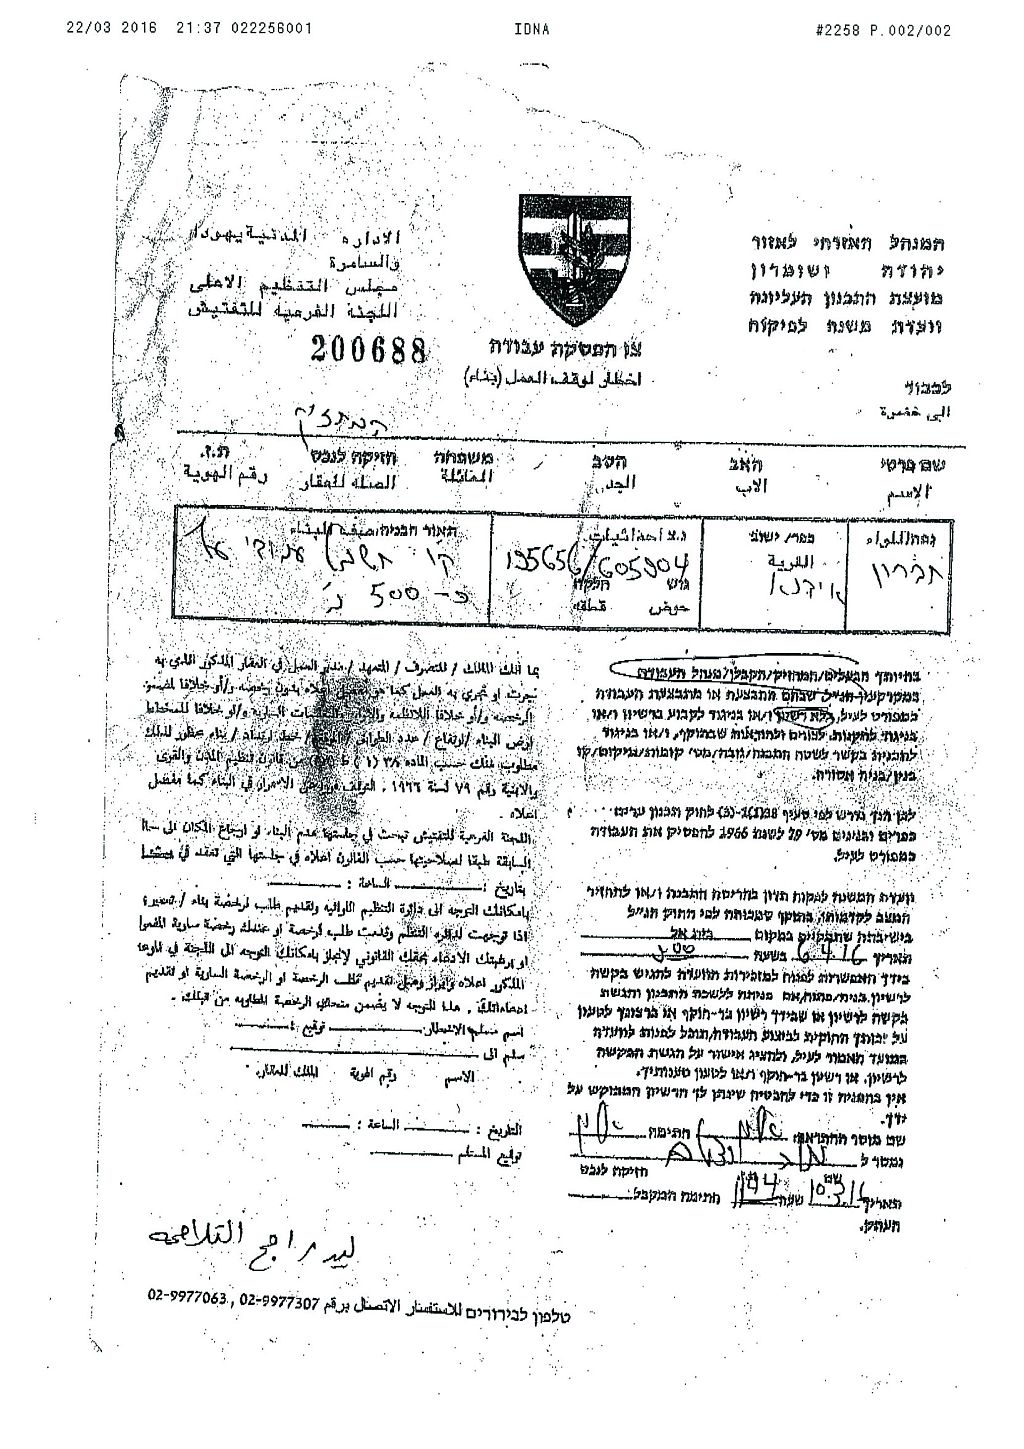 22/03 2016 21:37 022256001 IDNA #2258 P.002/002
המנהל האזרחי לאזור
יהודה ושומרון
מועצת התכנון העליונה
וועדת משנה לפיקוח
الاداره المدنية يهودا
والسامرة
مجلس التنظيم الاعلى
اللجنة الفرعيه للتفتيش
200688
צו הפסקת עבודה
اخطار لوقف العمل (بناء)
לכבוד
الى حضرة
המחזיק
שם פרטי האב הסב משפחה חזיקה לנכס ת.ז.
الإسم الاب الجد العائلة الصله للعقار رقم الهوية
נפה/اللواء
חברון
כפר/ ישוב
القرية
אידנא
נ.צ احداثيات
195656/605904
גוש חלקה
حوض قطعه
תאור הבניה/صيفة البناء
קו חשמל עמודי עץ
כ- 500 מ'
בהיותך הבעלים/המחזיק/הקבלן/מנהל העבודה
במקרקעין הנ"ל שבהם מתבצעת או מתבצעת העבודה
כמפורט לעיל, ללא רשיון ו/או בניגוד לקבוע ברשיון ו/או
בניגוד לתקנות, לצווים ולהוראות שבתוקף, ו/או בניגוד
לתכנית בקשר לשטח המבנה/גובה/מס' קומות/מיקום/קו
בנין/בניה אסורה.
לכן הנך נדרש לפי סעיף 38(1)-(3) לחוק תכנון ערים
כפרים ובנינים מס' 79 לשנת 1966 להפסיק את העבודה
כמפורט לעיל.
וועדת המשנה לפקוח תדון בהריסת המבנה ו/או להחזיר
המצב לקדמותו, בתוקף סמכותה לפי החוק הנ"ל
בישיבתה שתתקיים במקום בית אל
תאריך 6.4.16 בשעה
בידך האפשרות לפנות למזכירות הוועדה להגיש בקשה
לרשיון בניה/פתוח/אם פניתה ללשכת התכנון והגשת
בקשה לרשיון או שבידך רשיון בר-תוקף או ברצונך לטעון
על זכותך החוקית לביצוע העבודה/תוכל לפנות לוועדה
במועד האמור לעיל, ולהציג אישור על הגשת הבקשה
לרשיון, או רשיון בר-תוקף ו/או לטעון טענותיך.
אין בהפניה זו כדי להבטיח שינתן לך הרשיון המבוקש על
ידך.
שם מוסר ההתראה: חתימה
נמסר ל
חזיקה לנכס
תאריך 10.3.16 שעה חתימת המקבל
העתק.
بما انك المالك / المتصرف / المتعهد / مدير العمل في العقار المذكور الذي به
يجرت او تجري به العمل كما هو مفصل اعلاه بدون رخصه و/أو خلافا لمضمون
الرخصه و/أو خلافا للانظمة والاوامر والتعليمات السارية و/أو خلافا للمخطط
لرض البناء /ارتفاع / عدد الطوابق /الموقع/ خط ارتداد / بناء محظور لذلك
مطلوب منك حسب الماده ٣٨ (١) من قانون تنظيم المدن والقرى
والابنية رقم ٧٩ لسنة ١٩٦٦ . التوقف فورا عن الاستمرار في البناء كما مفصل
اعلاه.
اللجنة الفرعية للتفتيش تبحث في جلستها هدم البناء او ارجاع المكان الى حالته
السابقة طبقا لصلاحيتها حسب القانون اعلاه في جلستها التي تعقد في
بتاريخ : الساعة :
بامكانك التوجه الى دائرة التنظيم اللوائيه وتقديم طلب لرخصة بناء / تعمير
اذا توجهت لدائره التنظيم وقدمت طلب لرخصة او عندك رخصة سارية المفعول
او برغبتك الادعاء بحقك القانوني لانجاز بامكانك التوجه الى اللجنة في الموعد
المذكور اعلاه وابراز وصل تقديم طلب الرخصة او الرخصة السارية او تقديم
ادعاءاتك . هذا التوجه لا يضمن منحك الرخصة المطلوبه من قبلك.
اسم مسلم الاخطار: توقيع :
سلم الى
الاسم رقم الهوية المالك للعقار.
التاريخ : الساعة :
توقيع المستلم
טלפון לבירורים للاستفسار الاتصال برقم 02-9977307 , 02-9977063